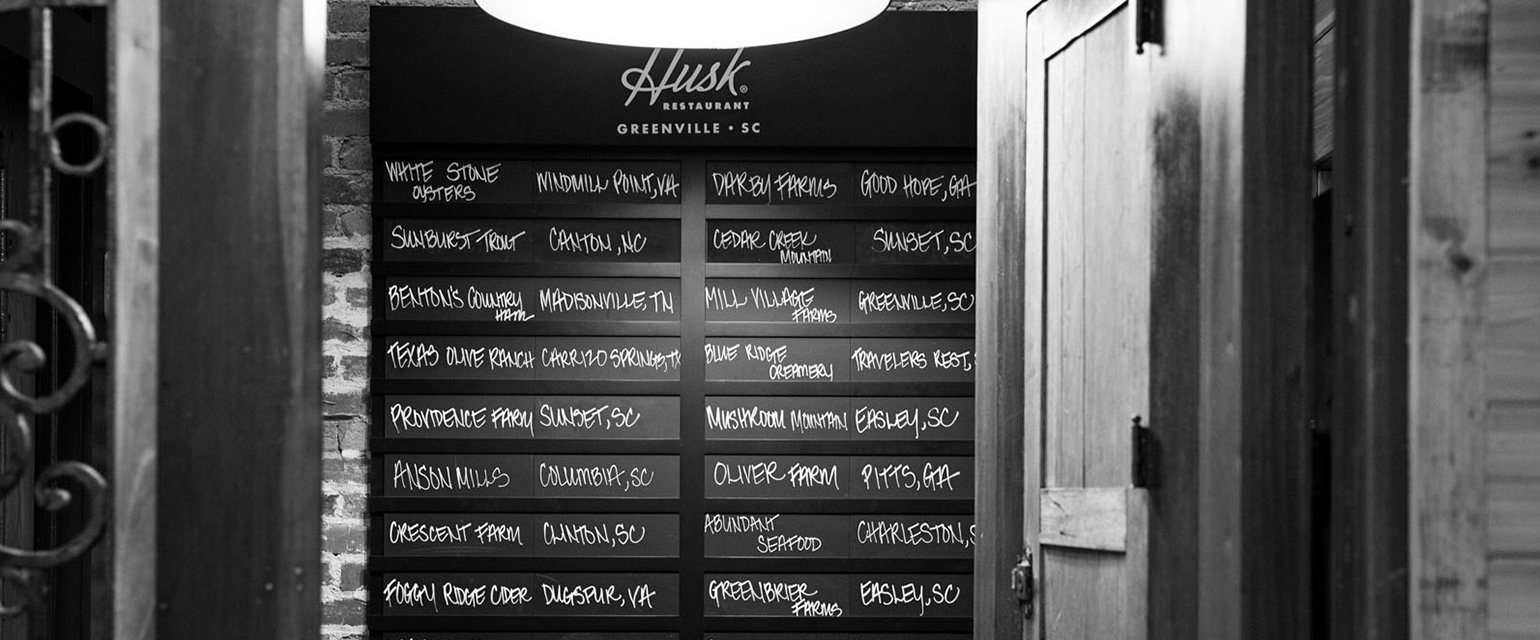 Husk®
RESTAURANT
GREENVILLE • SC
WHITE STONE
OYSTERS
WINDMILL POINT, VA
DARBY FARMS
GOOD HOPE, GA
SUNBURST TROUT
CANTON, NC
CEDAR CREEK
MOUNTAIN
SUNSET, SC
BENTON'S COUNTRY
HAM
MADISONVILLE, TN
MILL VILLAGE
FARMS
GREENVILLE, SC
TEXAS OLIVE RANCH
CARRIZO SPRINGS, TX
BLUE RIDGE
CREAMERY
TRAVELERS REST,
PROVIDENCE FARM
SUNSET, SC
MUSHROOM MOUNTAIN
EASLEY, SC
ANSON MILLS
COLUMBIA, SC
OLIVER FARM
PITTS, GA
CRESCENT FARM
CLINTON, SC
ABUNDANT
SEAFOOD
CHARLESTON, S
FOGGY RIDGE CIDER
DUGSPUR, VA
GREENBRIER
FARMS
EASLEY, SC